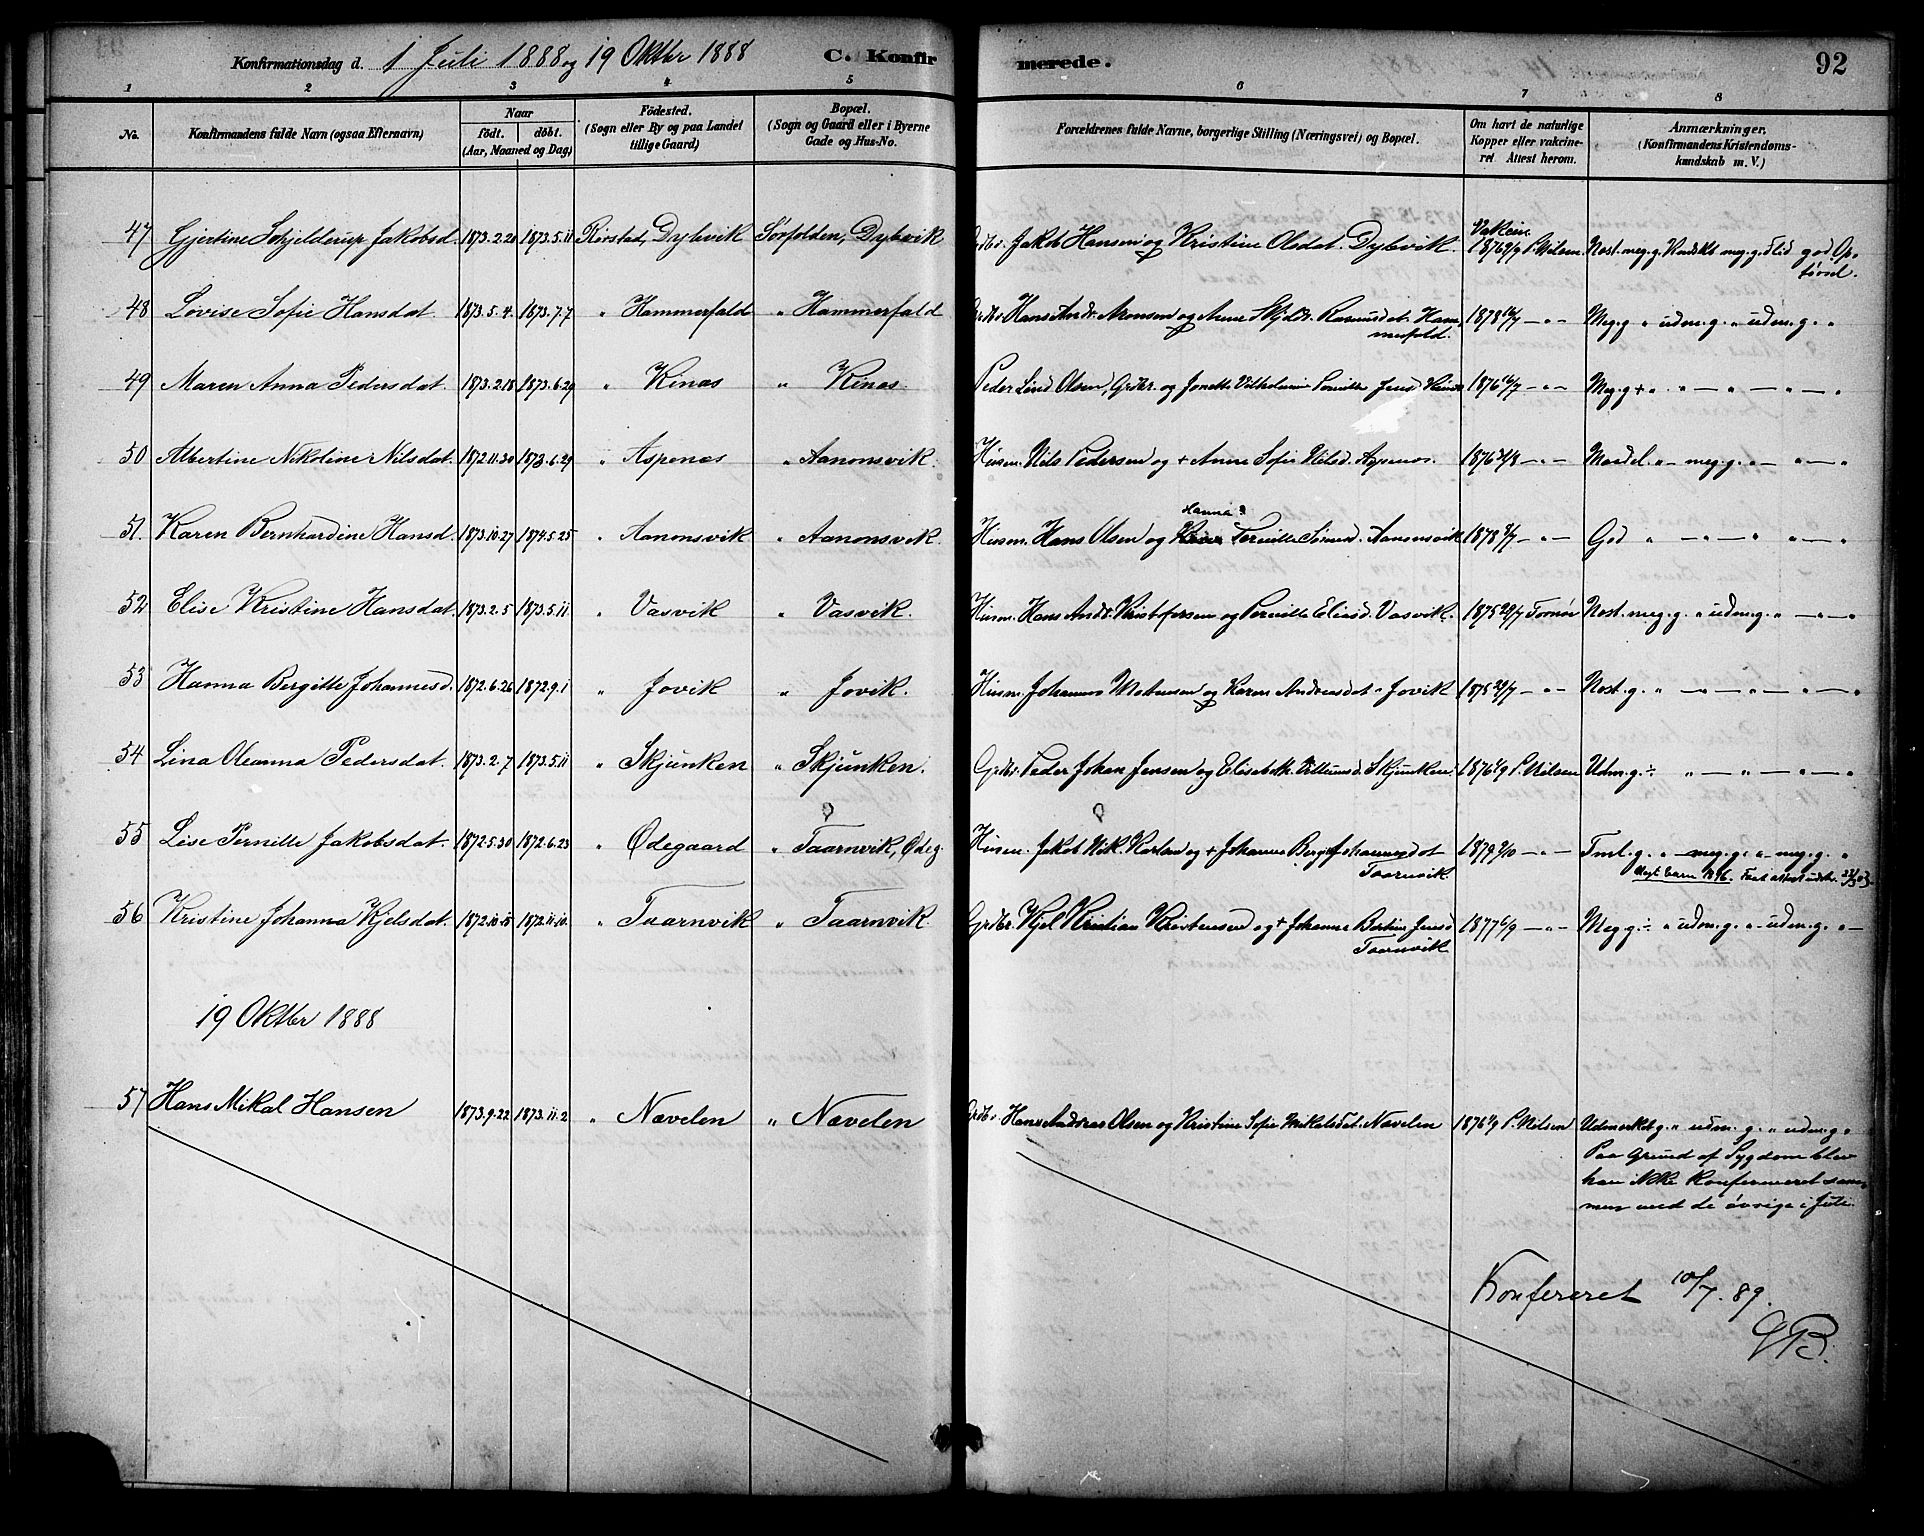 Konfirmationsdag d. 1 Juli 1888 og 19 Oktbr 1888 C. Konfirmerede. 92
1 2 3 4 5 6 7 8
No. Konfirmandens fulde Navn (ogsaa Efternavn) Naar födt. döbt. (Aar, Maaned og Dag) Födested. (Sogn eller By og paa Landet tillige Gaard) Bopæl. (Sogn og Gaard eller i Byerne Gade og Hus-No. Forældrenes fulde Navne, borgerlige Stilling (Næringsvei) og Bopæl. Om havt de naturlige Kopper eller vakcineret. Attest herom. Anmærkninger, (Konfirmandens Kristendomskundskab m. V.)
47 Gjertine Schjelderup Jakobsd. 1873.2.20 1873.5.11 Rørstad, Dybvik Sørfolden, Dybvik Grdbr. Jakob Hansen og Kristine Olsdat. Dybvik. Vakcin. 1876 6/9 P. Nilsen. Nost. meg. g. Kundskb meg. g. Flid god Opførsel.
48 Lovise Sofie Hansdat. 1873.5.4. 1873.7.7 " Hammerfald " Hammerfald Grdbr. Hans Andr. Aronsen og Anne Skjeldr. Rasmusdat. Hammerfald. 1878 16/7 — " — Meg. g " udm. g. " udm. g. "
49 Maren Anna Pedersdat. 1873.2.18 1873.6.29 " Kinas " Kinas Peder Lind Olsen, Grdbr. og Jonette Vilhelmine Pernille Jensd Kinas 1876 16/7 — " — Meg. g + " " — " — " — "
50 Albertine Nikoline Nilsdat. 1872.11.30 1873.6.29 " Aspenes " Aanonsvik. Husm. Nils Pedersen og + Anne Sofie Nilsd. Aspenes. 1876 — " — Maadel. " — meg. g. " — " — "
51. Karen Bernhardine Hansd. 1873.10.27 1874.5.25 " Aanonsvik " Aanonsvik. Husm. Hans Olsen og Hanna? Pernille Sørensd. Aanonsvik 1878 9/7 — " — God " — " — " " — "
52 Elise Kristine Hansdat. 1873.2.5 1873.5.11 " Vasvik " Vasvik. Husm. Hans Andr. Kristofersen og Pernille Eliasd. Vasvik. 1875 29/7 Nost. meg. g. " udm. g. " — " — "
53 Hanna Bergitte Johannesd. 1872.6.26 1872.9.1 " Jovik " Jovik. Husm. Johannes og Karen Andreasdat. Jovik 1875 29/7 — " — Nost. g. " — " — " — "
54 Lina Oleanna Pedersdat. 1873.2.7 1873.5.11 " Skjunken " Skjunken. Grdbr. Peder Johan Jensen og Elisabeth Villumsd. Skjunken. 1876 6/9 P. Nilsen Udm. g. ÷ " — " — " — "
55 Lise Pernille Jakobsdat. 1872.5.30 1872.6.23 " Ødegaard " Taarnvik, Ødeg. Husm. Jakob Nik. Karlsen og + Johanna Berg. Johannesdat Taarnvik. 1879 9/10 — " — Tml. g. " — meg. g. " — meg. g. "
56 Kristine Johanna Kjelsdat. 1872.10.15 1872.11.10. " Taarnvik " Taarnvik. Grdbr. Kjel Kristian Kristensen og + Johanna Jensd Taarnvik. 1877 6/9 — " — Meg. g. ÷ " udm. g. " — udm. g. " —
19 Oktber 1888
57 Hans Mikal Hansen 1873.9.22 1873.11.2 " Nævelen " Nævelen Grdbr. Hans Andreas Olsen og Kristine Sofie Mikalsdt. Nævelen 1876 6/9 P. Nilsen Udmerket g. " udm. g. " udm. g.
Paa Grund af Sygdom blev
han ikke konfirmeret sam
men med de øvrige i Juli.
Konfereret 10/7. 89.
GB.